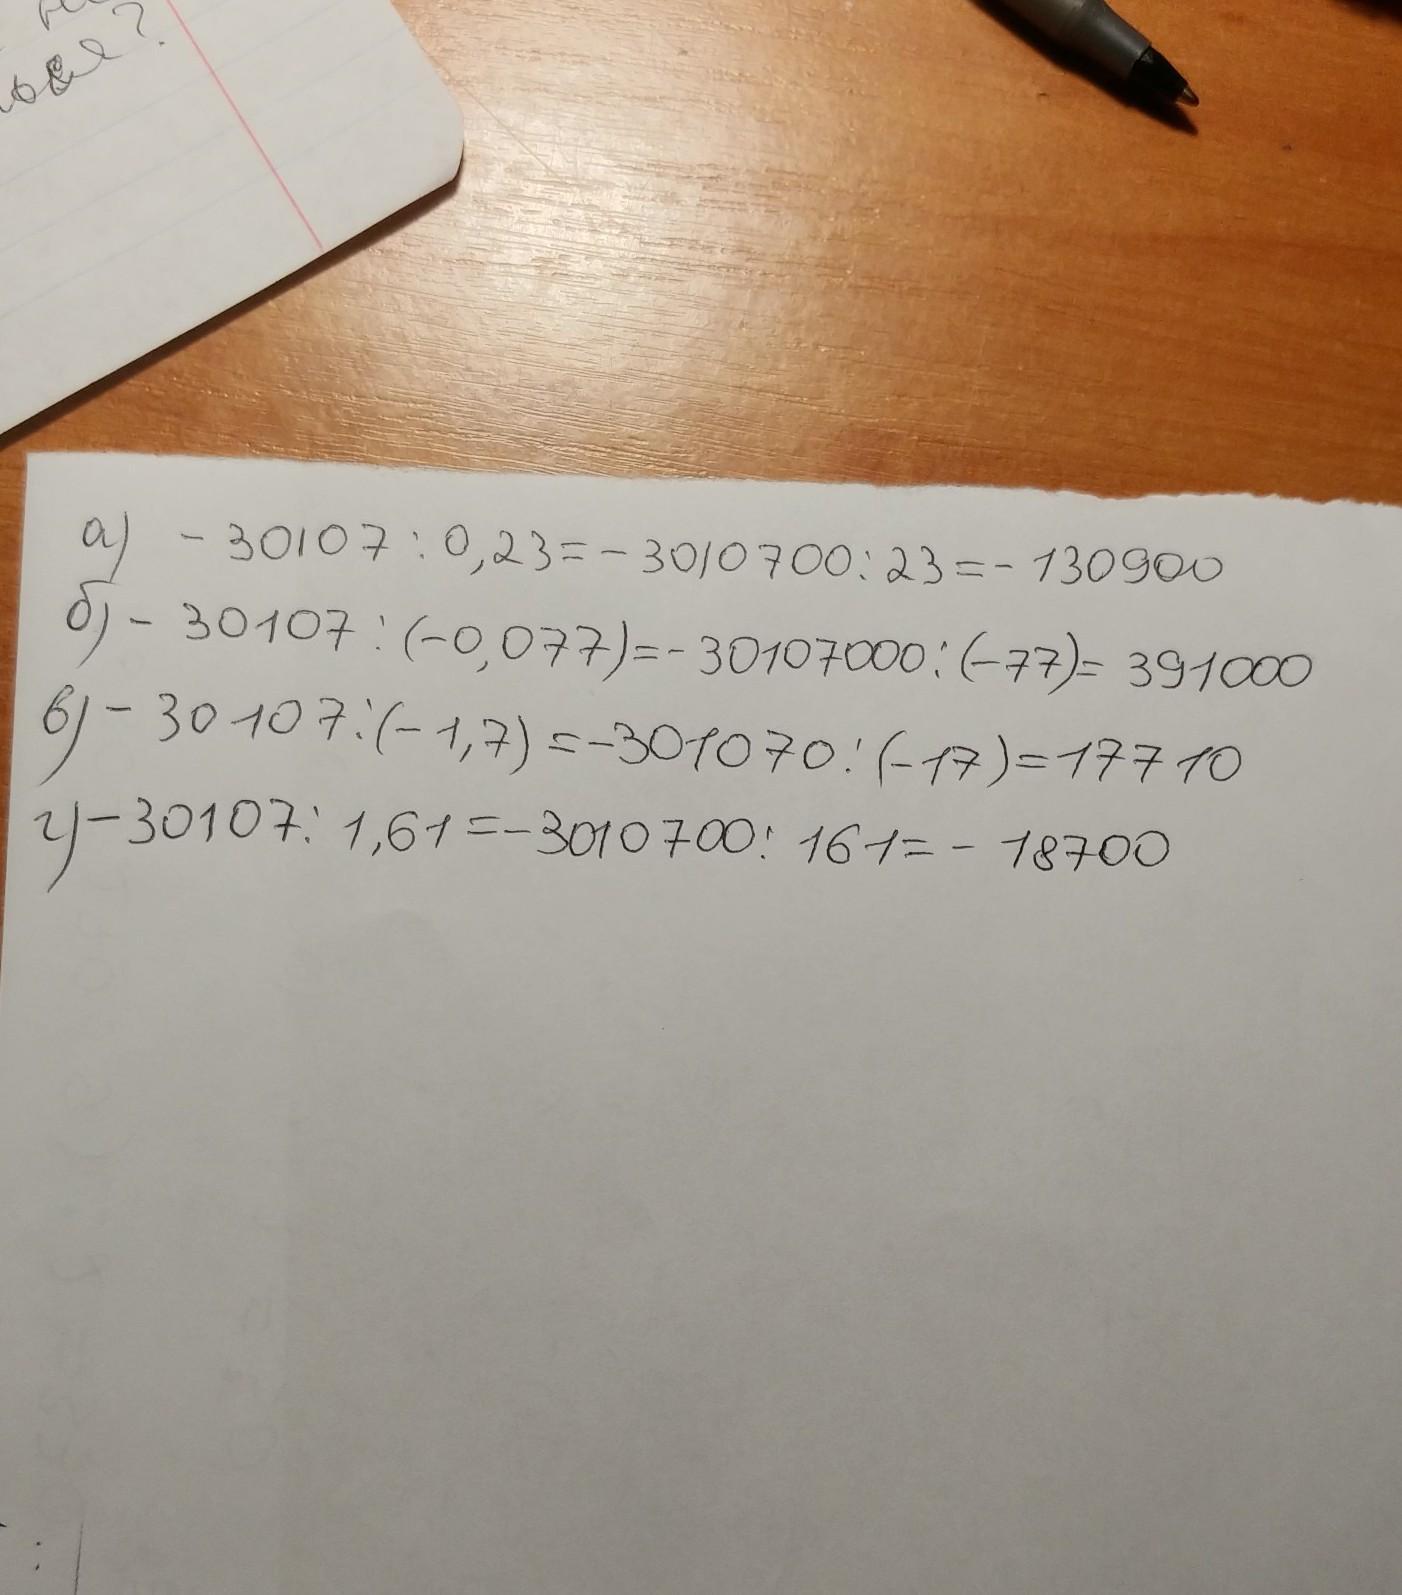 а) - 30107 : 0,23 = - 3010700 : 23 = - 130900
б) - 30107 : (-0,077) = - 30107000 : (-77) = 391000
в) - 30107 : (-1,7) = -301070 : (-17) = 17710
г) - 30107 : 1,61 = - 3010700 : 161 = - 18700